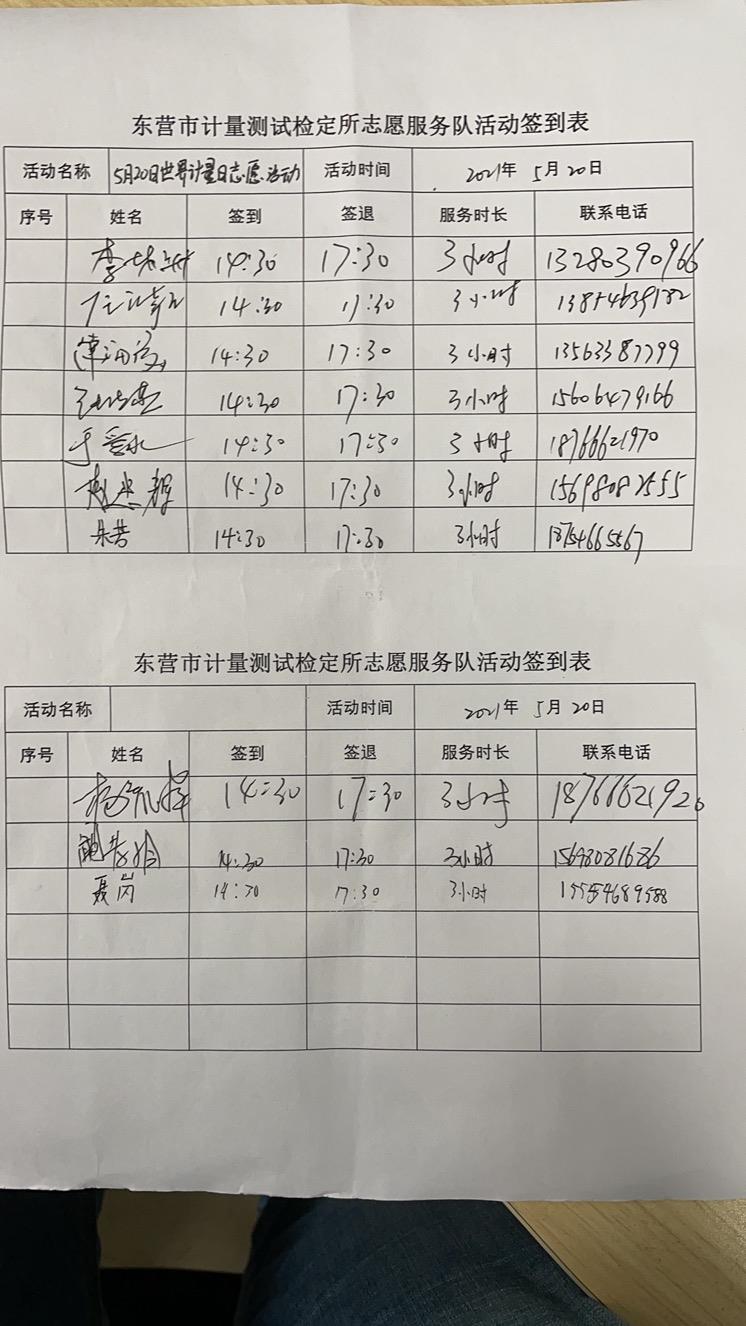 东营市计量测试检定所志愿服务队活动签到表
活动名称 5月20日世界计量日志愿活动 活动时间 2021年 5月20日
序号 姓名 签到 签退 服务时长 联系电话
14:30 17:30 3小时 13280390966
14:30 17:30 3小时 13854639182
14:30 17:30 3小时 13563387799
14:30 17:30 3小时 15606479166
于爱水 14:30 17:30 3小时 18766621970
14:30 17:30 3小时 15698082555
朱芸 14:30 17:30 3小时 18754665567
东营市计量测试检定所志愿服务队活动签到表
活动名称 活动时间 2021年 5月20日
序号 姓名 签到 签退 服务时长 联系电话
14:30 17:30 3小时 18766621926
14:30 17:30 3小时 15698081686
聂岗 14:30 17:30 3小时